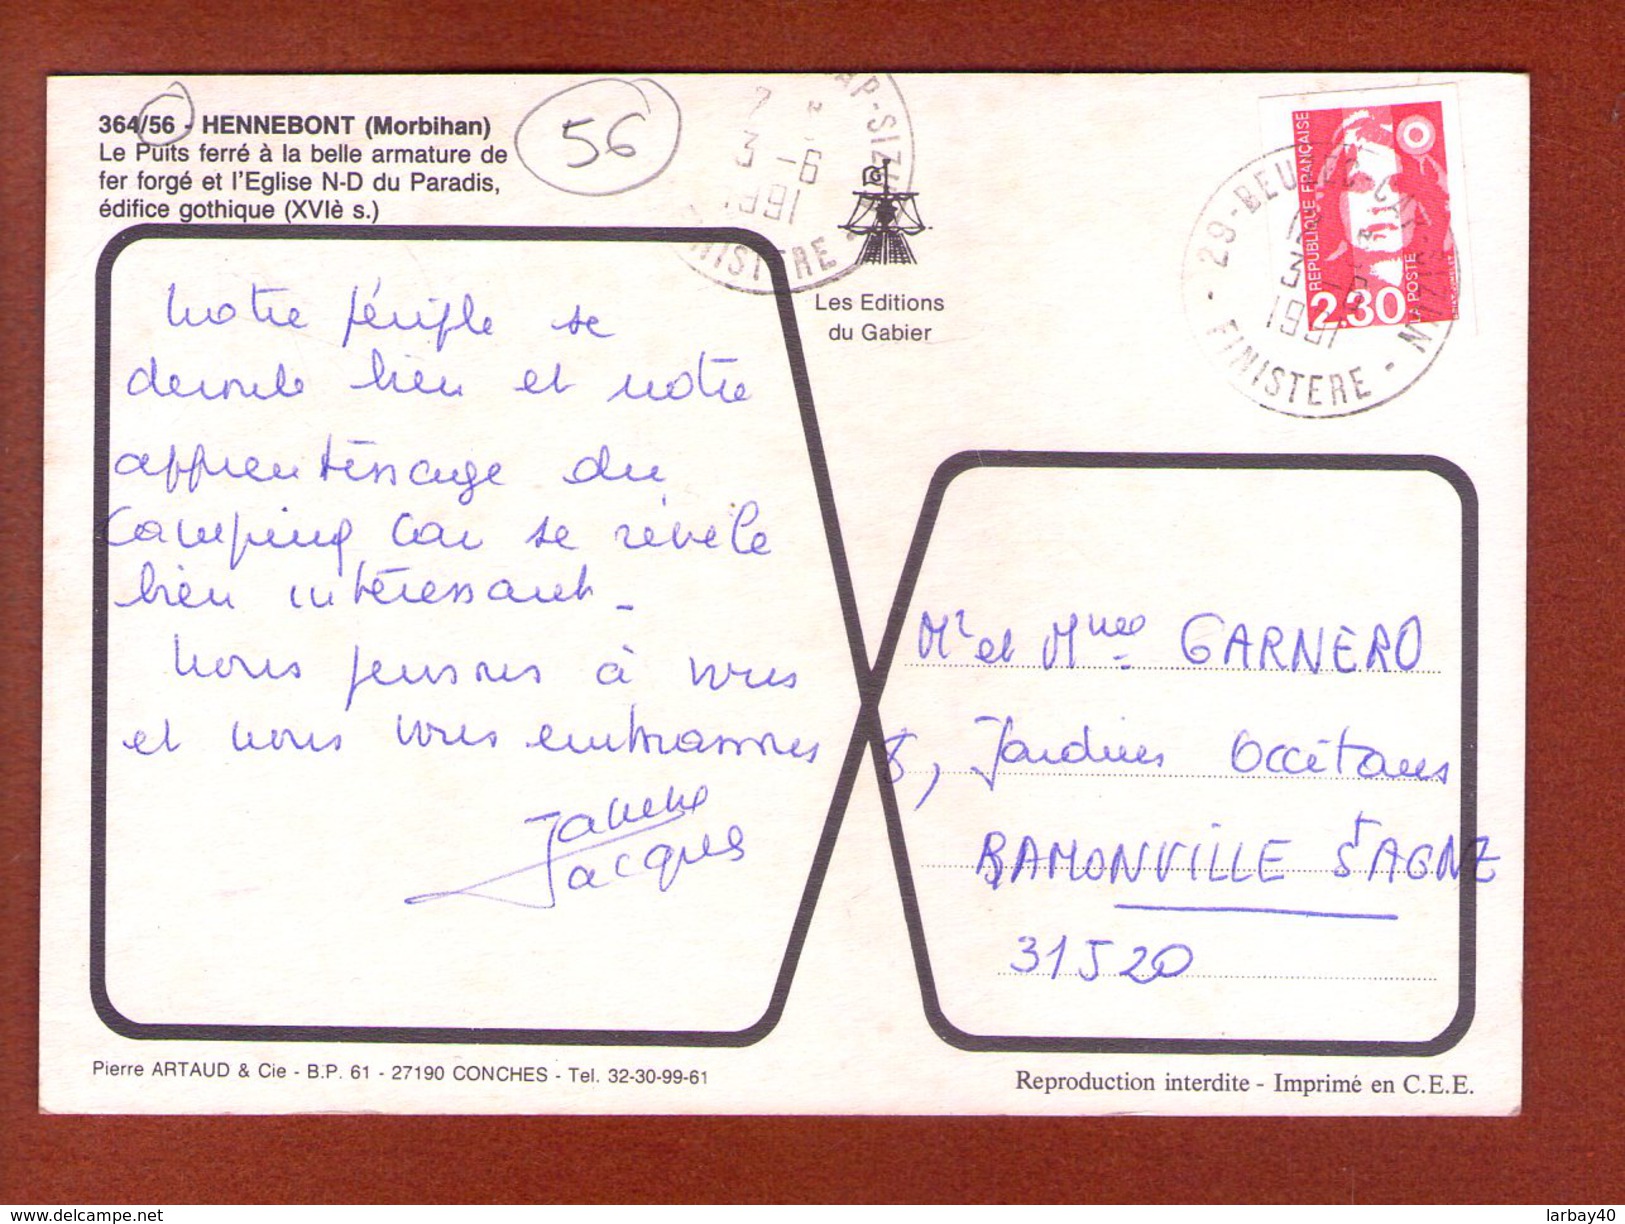 364/56 - HENNEBONT (Morbihan)
Le Puits ferré à la belle armature de
fer forgé et l'Eglise N-D du Paradis,
édifice gothique (XVIè s.)
56
3 -6
1991
Les Editions
du Gabier
REPUBLIQUE FRANÇAISE
2.30
LA POSTE
29-BEUZEC-CAP-SIZUN
1991
FINISTERE
notre périple se
deroule bien et notre
apprentissage du
camping car se révèle
bien intéressant_
nous pensons à vous
et nous vous embrassons
Janette
Jacques
Mr et Mme GARNERO
8, Jardins Occitans
RAMONVILLE St AGNE
31520
Pierre ARTAUD & Cie - B.P. 61 - 27190 CONCHES - Tel. 32-30-99-61
Reproduction interdite - Imprimé en C.E.E.
www.delcampe.net
larbay40